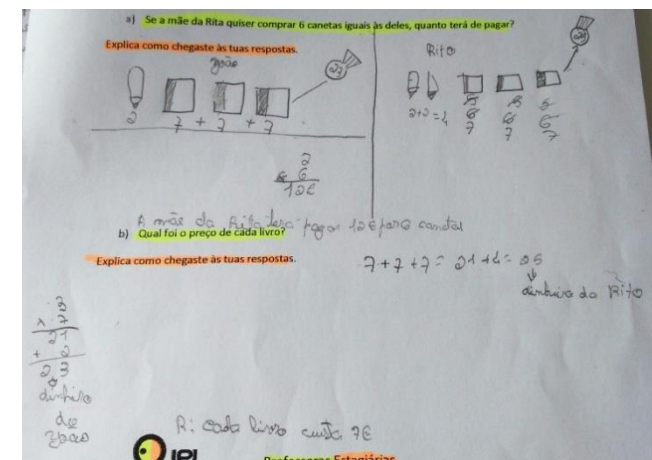 a) Se a mãe da Rita quiser comprar 6 canetas iguais às deles, quanto terá de pagar?
Explica como chegaste às tuas respostas.
João
23
2 7 + 7 + 7
Rita
25
2+2=4
5 5 5
6 6 6
7 7 7
2
x 6
12€
A mãe da Rita terá pagar 12€ para canetas
b) Qual foi o preço de cada livro?
Explica como chegaste às tuas respostas.
7+7+7= 21+4= 25
dinheiro da Rita
3
x 7
21
+ 2
23
dinheiro
do
João
R: cada livro custa 7€
Professoras Estagiárias